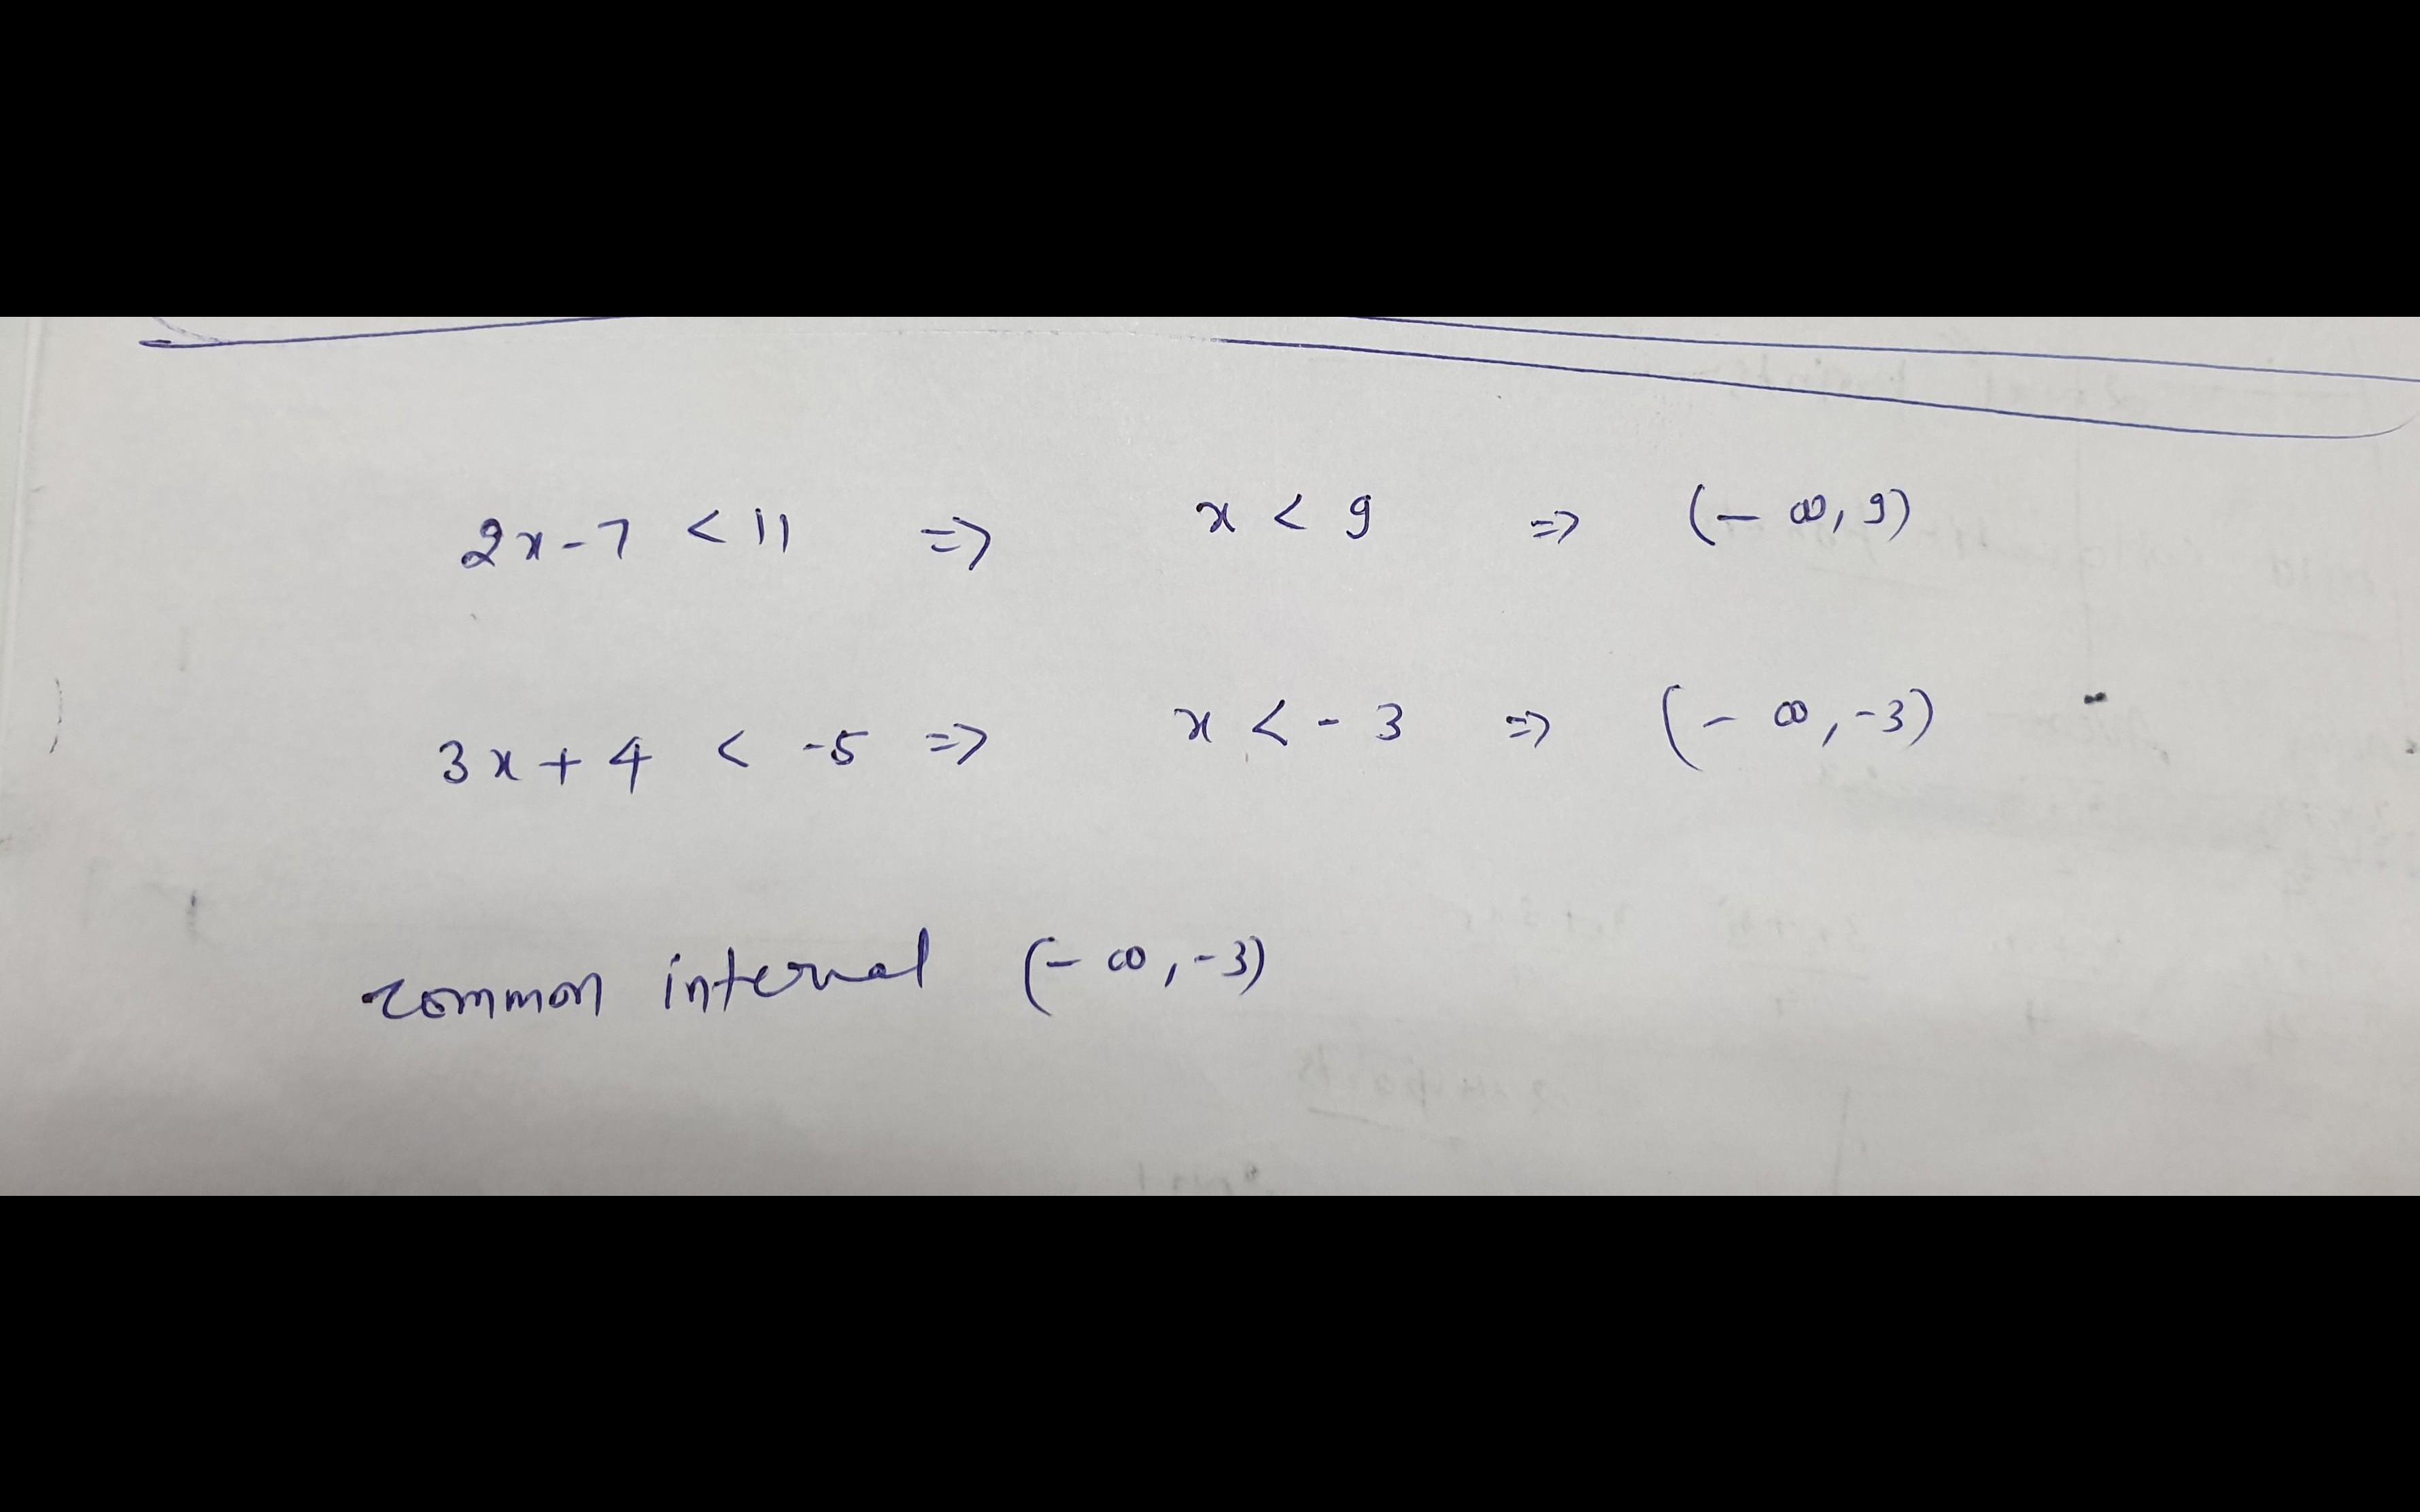 2x-7 < 11 => x < 9 => (- ∞, 9)
3x+4 < -5 => x < -3 => (- ∞, -3)
common interval (- ∞, -3)